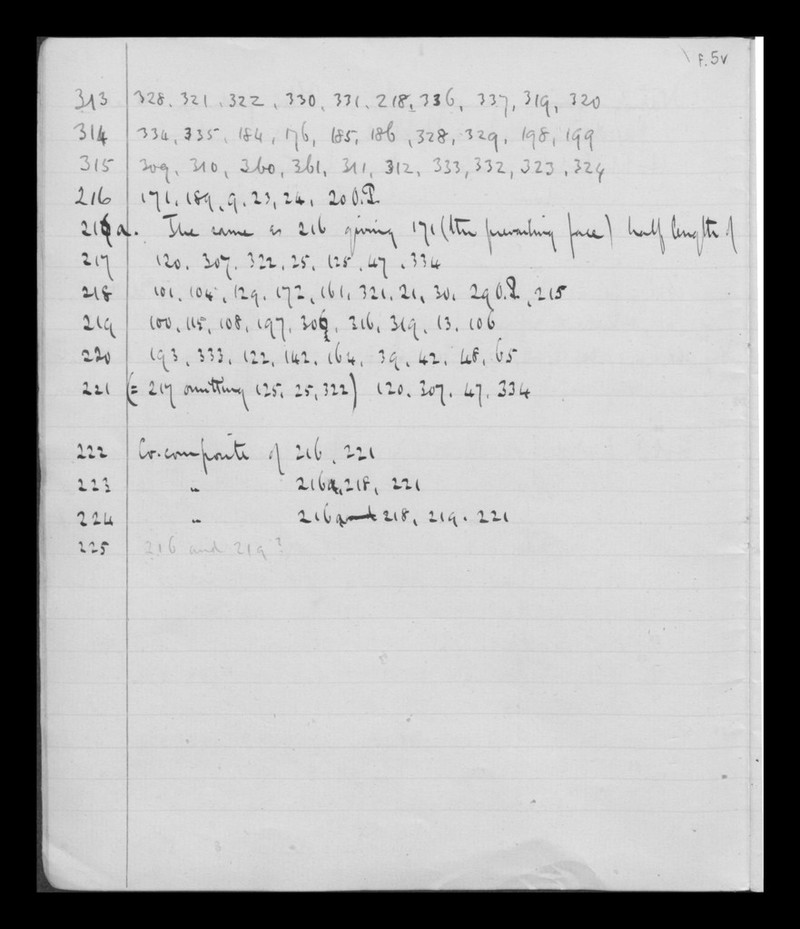 F.5v
313 328, 321, 322, 330, 331, 218, 336, 337, 319, 320
314 334, 335, 184, 176, 185, 186, 328, 329, 198, 199
315 309, 310, 360, 361, 311, 312, 333, 332, 323, 324
216 171, 189, 9, 23, 24, 20 O.P.
216a. The same as 216 giving 171 (the prevailing face) half length of
217 120, 307, 322, 25, 125, 47, 334
218 101, 104, 129, 172, 161, 321, 21, 30, 29 O.P., 215
219 100, 115, 108, 197, 306, 316, 319, 13, 106
220 193, 333, 122, 142, 164, 39, 42, 48, 65
221 (= 217 omitting 125, 25, 322) 120, 307, 47, 334
222 Co-composite of 216, 221
223 " 216a, 218, 221
224 " 216a 218, 219, 221
225 216 and 219?